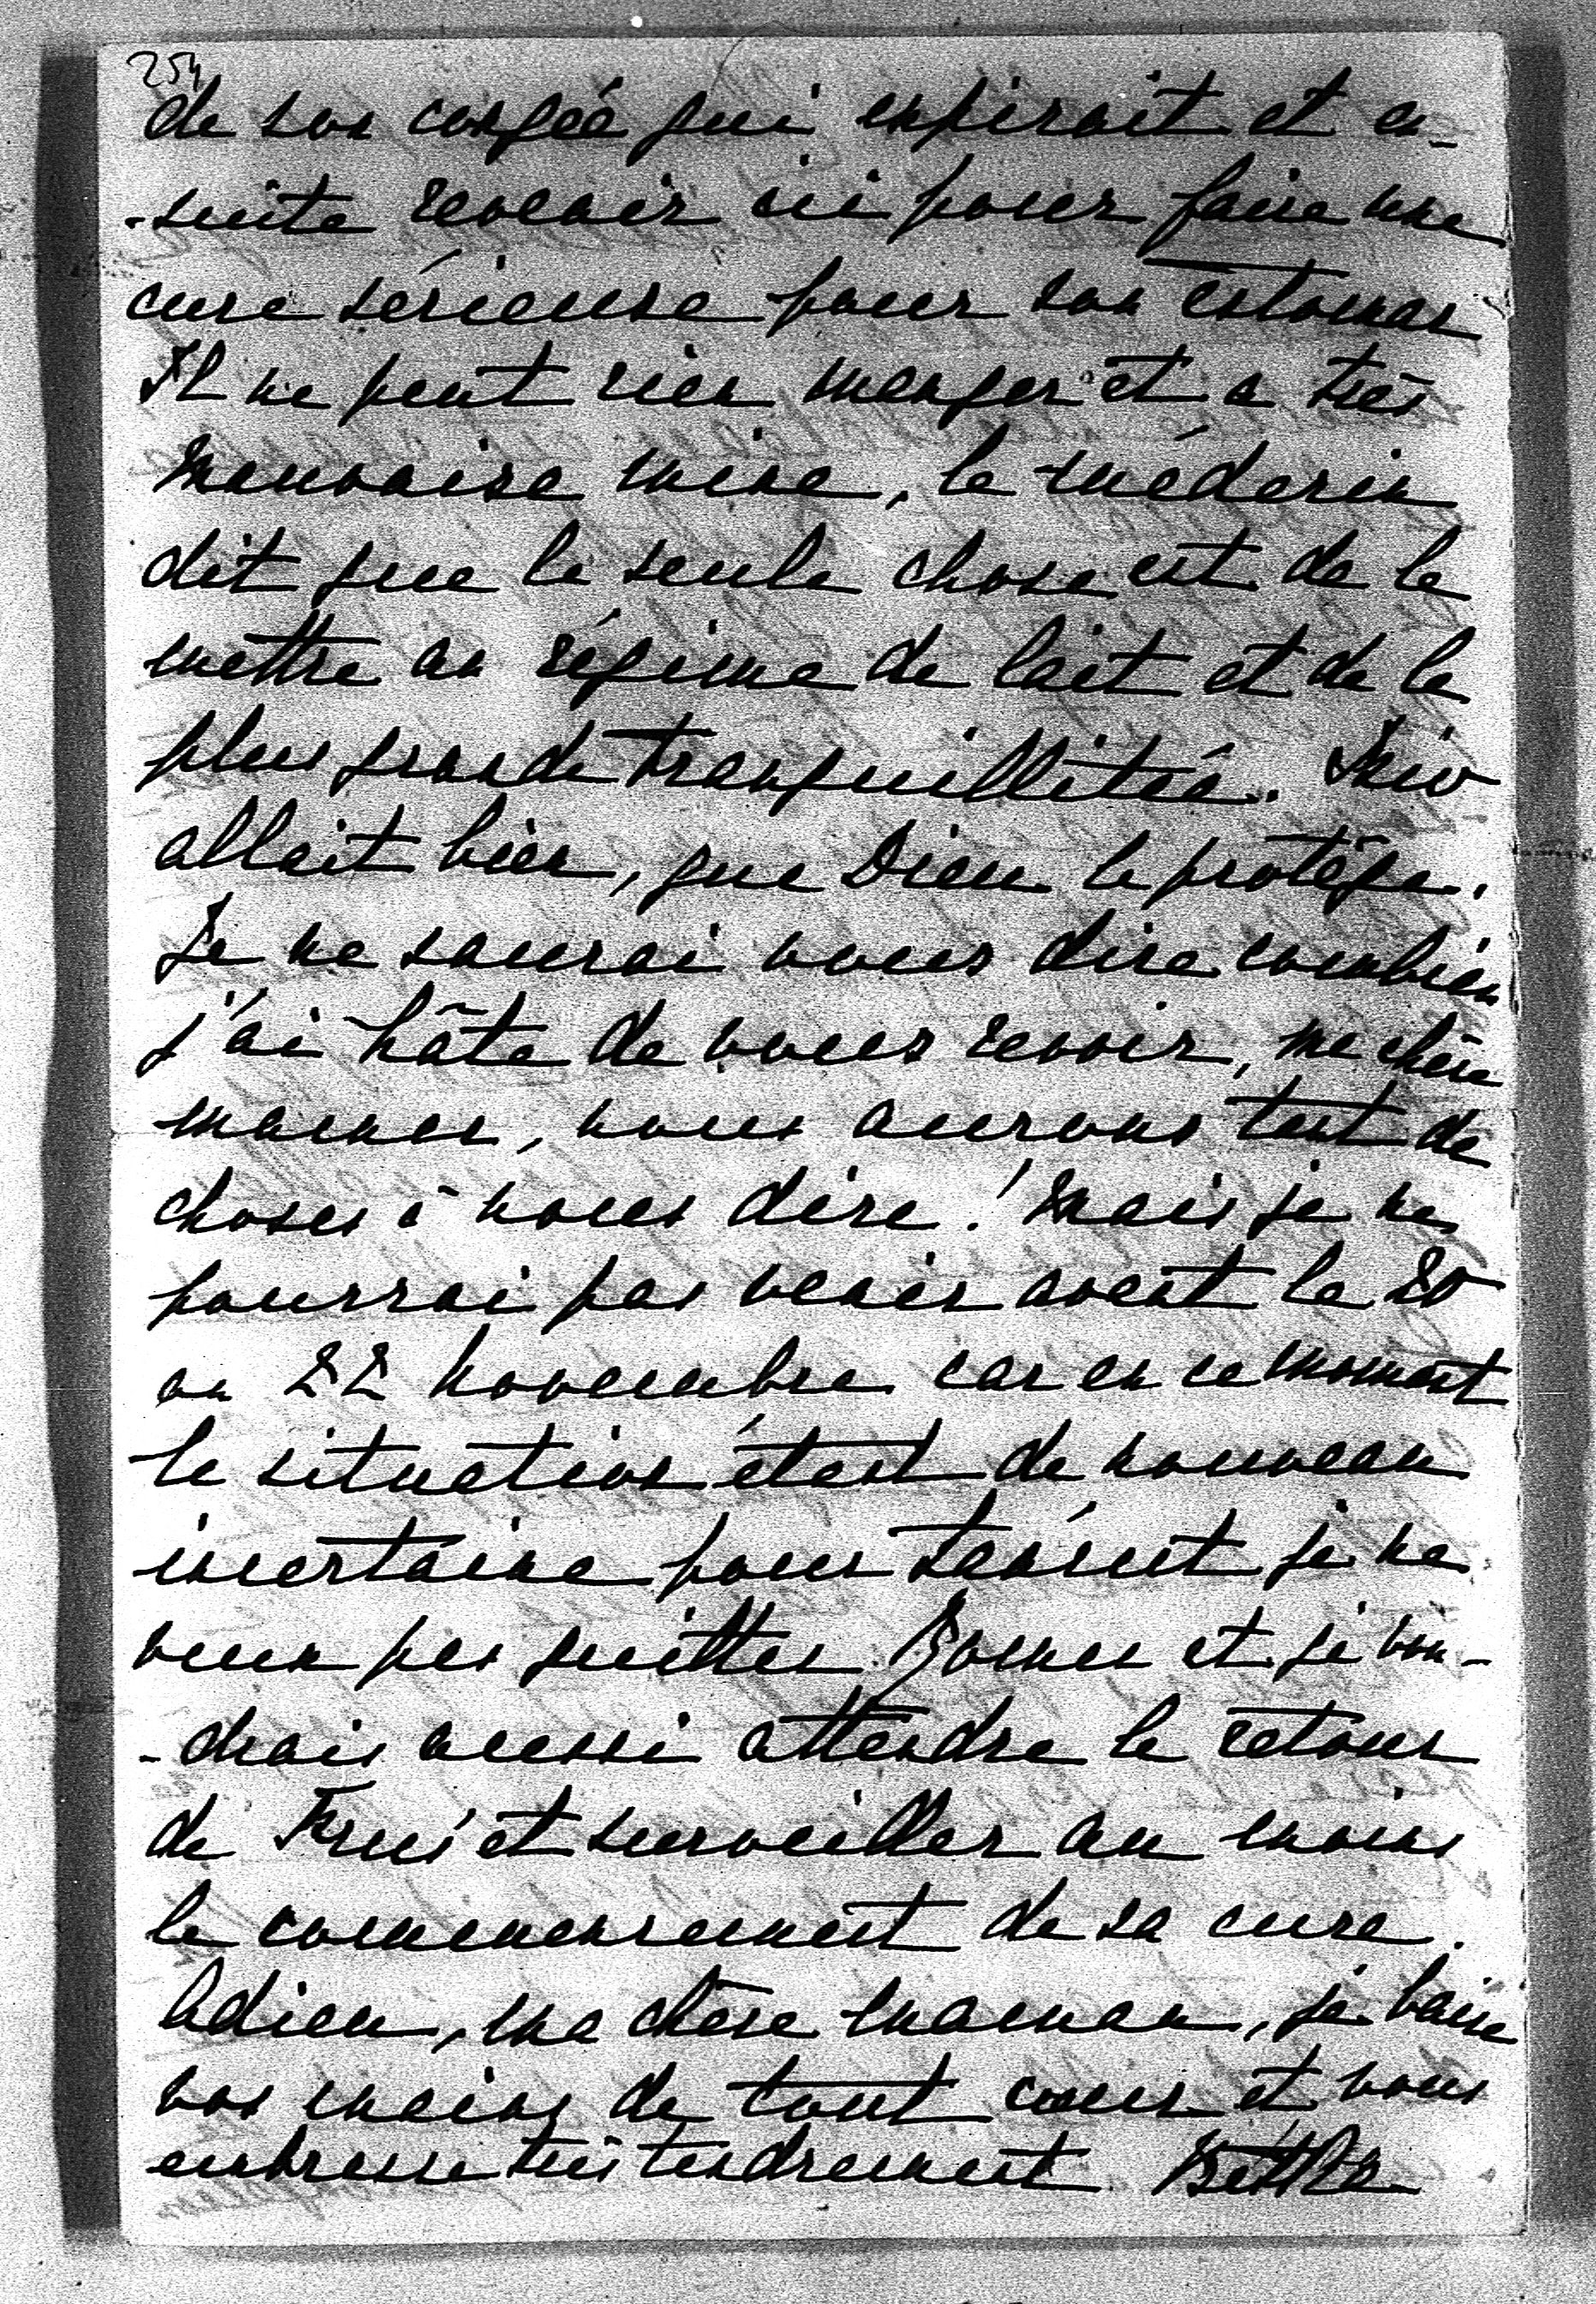 254
de son congéé qui expirait et en-
-suite revenir ici pour faire une
cure sérieuse pour son estomac
Il ne peut rien manger et a très
mauvaise mine, le médecin
dit que la seule chose est de le
mettre au régime de lait et de la
plus grande tranquillitée.
allait bien, que Dieu le protège.
Je ne saurai vous dire combien
j'ai hâte de vous revoir, ma chère
maman, nous aurons tant de
choses à nous dire! Mais je ne
pourrai pas venir avant le 20
ou 22 novembre car en ce moment
la situation étant de nouveau
incertaine pour je ne
veux pas quitter Rome et je vou-
-drais aussi attendre le retour
de et surveiller au moins
le commencement de sa cure.
Adieu, ma chère maman, je baise
vos mains de tout cœur et vous
embrasse très tendrement